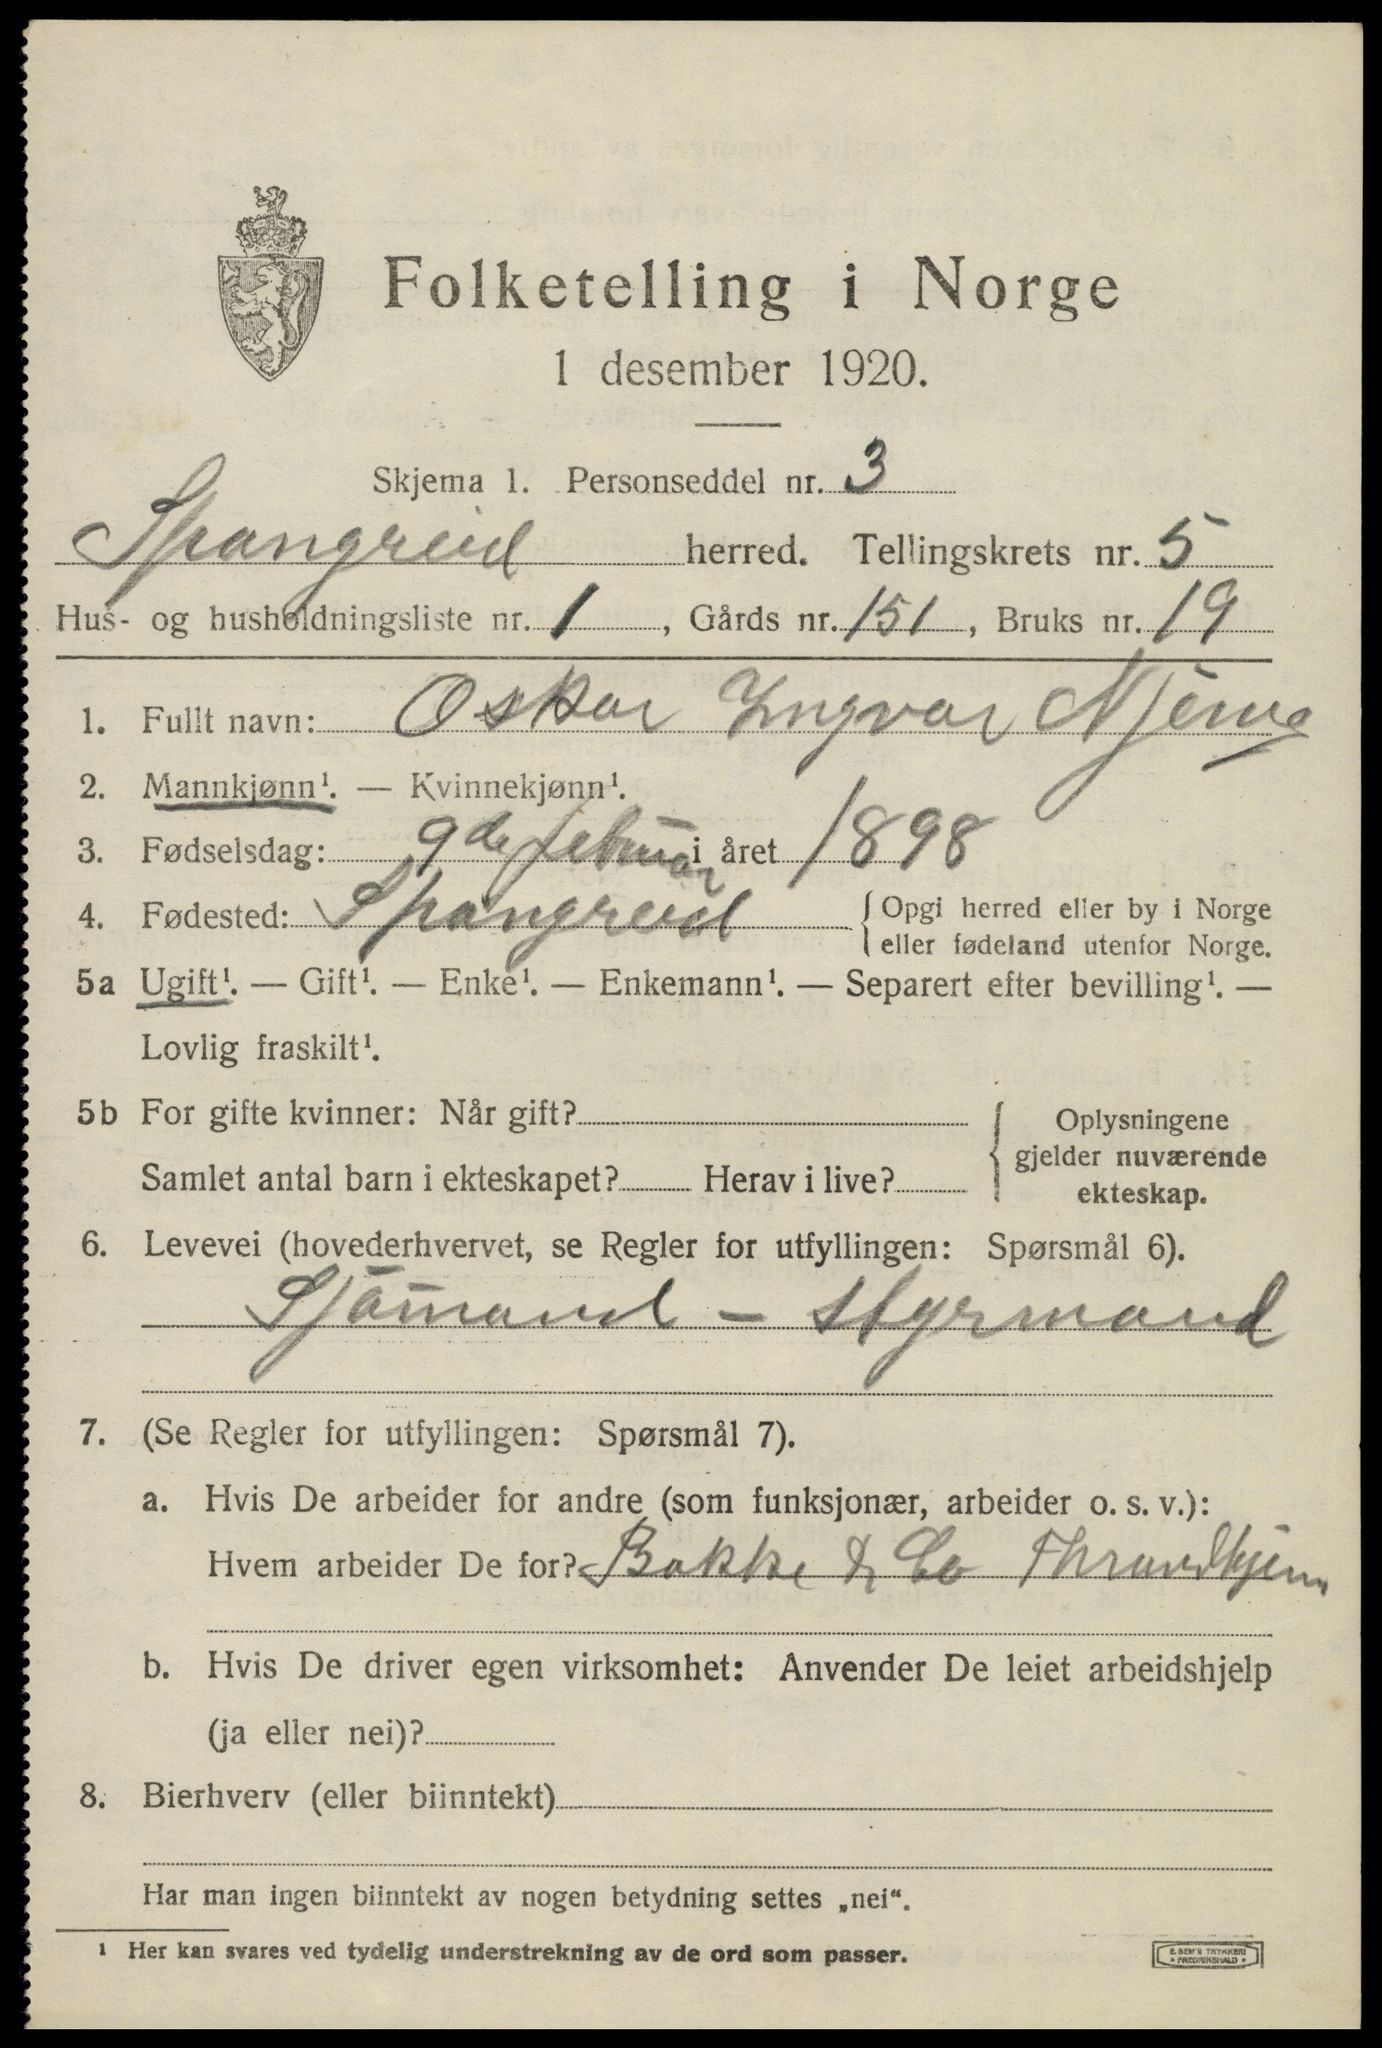 Folketelling i Norge
1 desember 1920.
Skjema 1. Personseddel nr. 3
Spangreid herred. Tellingskrets nr. 5
Hus- og husholdningsliste nr. 1, Gårds nr. 151, Bruks nr. 19
1. Fullt navn: Oskar Yngvar Njerve
2. Mannkjønn¹. — Kvinnekjønn¹.
3. Fødselsdag: 9de februar i året 1898
4. Fødested: Spangreid { Opgi herred eller by i Norge
eller fødeland utenfor Norge.
5a Ugift¹. — Gift¹. — Enke¹. — Enkemann¹. — Separert efter bevilling¹. —
Lovlig fraskilt¹.
5b For gifte kvinner: Når gift? { Oplysningene
gjelder nuværende
ekteskap.
Samlet antal barn i ekteskapet? Herav i live?
6. Levevei (hovederhvervet, se Regler for utfyllingen: Spørsmål 6).
Sjömand - styrmand
7. (Se Regler for utfyllingen: Spørsmål 7).
a. Hvis De arbeider for andre (som funksjonær, arbeider o. s. v.):
Hvem arbeider De for? Bakke & Co Thrandhjem
b. Hvis De driver egen virksomhet: Anvender De leiet arbeidshjelp
(ja eller nei)?
8. Bierhverv (eller biinntekt)
Har man ingen biinntekt av nogen betydning settes „nei“.
¹ Her kan svares ved tydelig understrekning av de ord som passer.
E. SEM'S TRYKKERI
FREDRIKSHALD